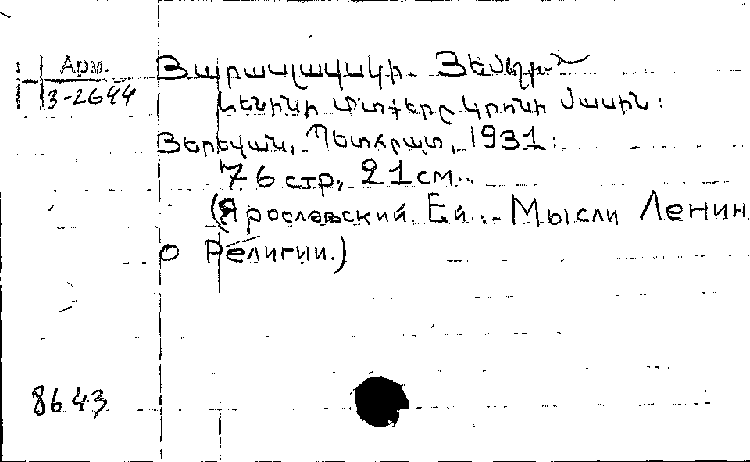 Арм.
3-2644
Յարասլավսկի. Յեմելյան
Լենինի մտքերը կրոնի մասին:
Յերեվան, Պետհրատ, 1931:
76 стр, 21 см.
(Ярославский Ем. - Мысли Ленин
о Религии.)
8643